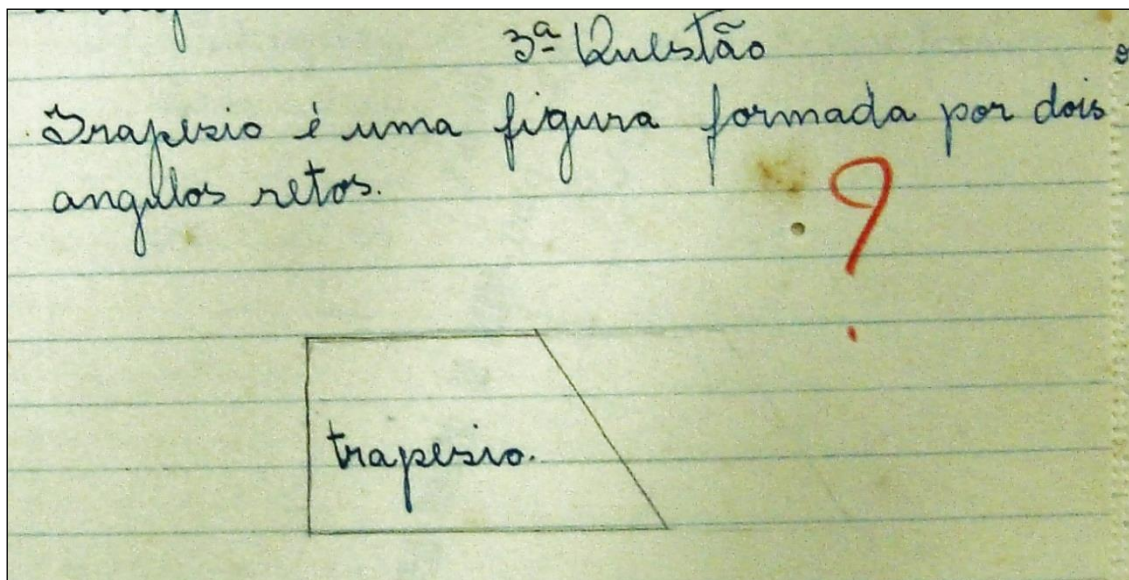 3ª Questão
Trapezio é uma figura formada por dois
angulos retos.
?
trapezio.